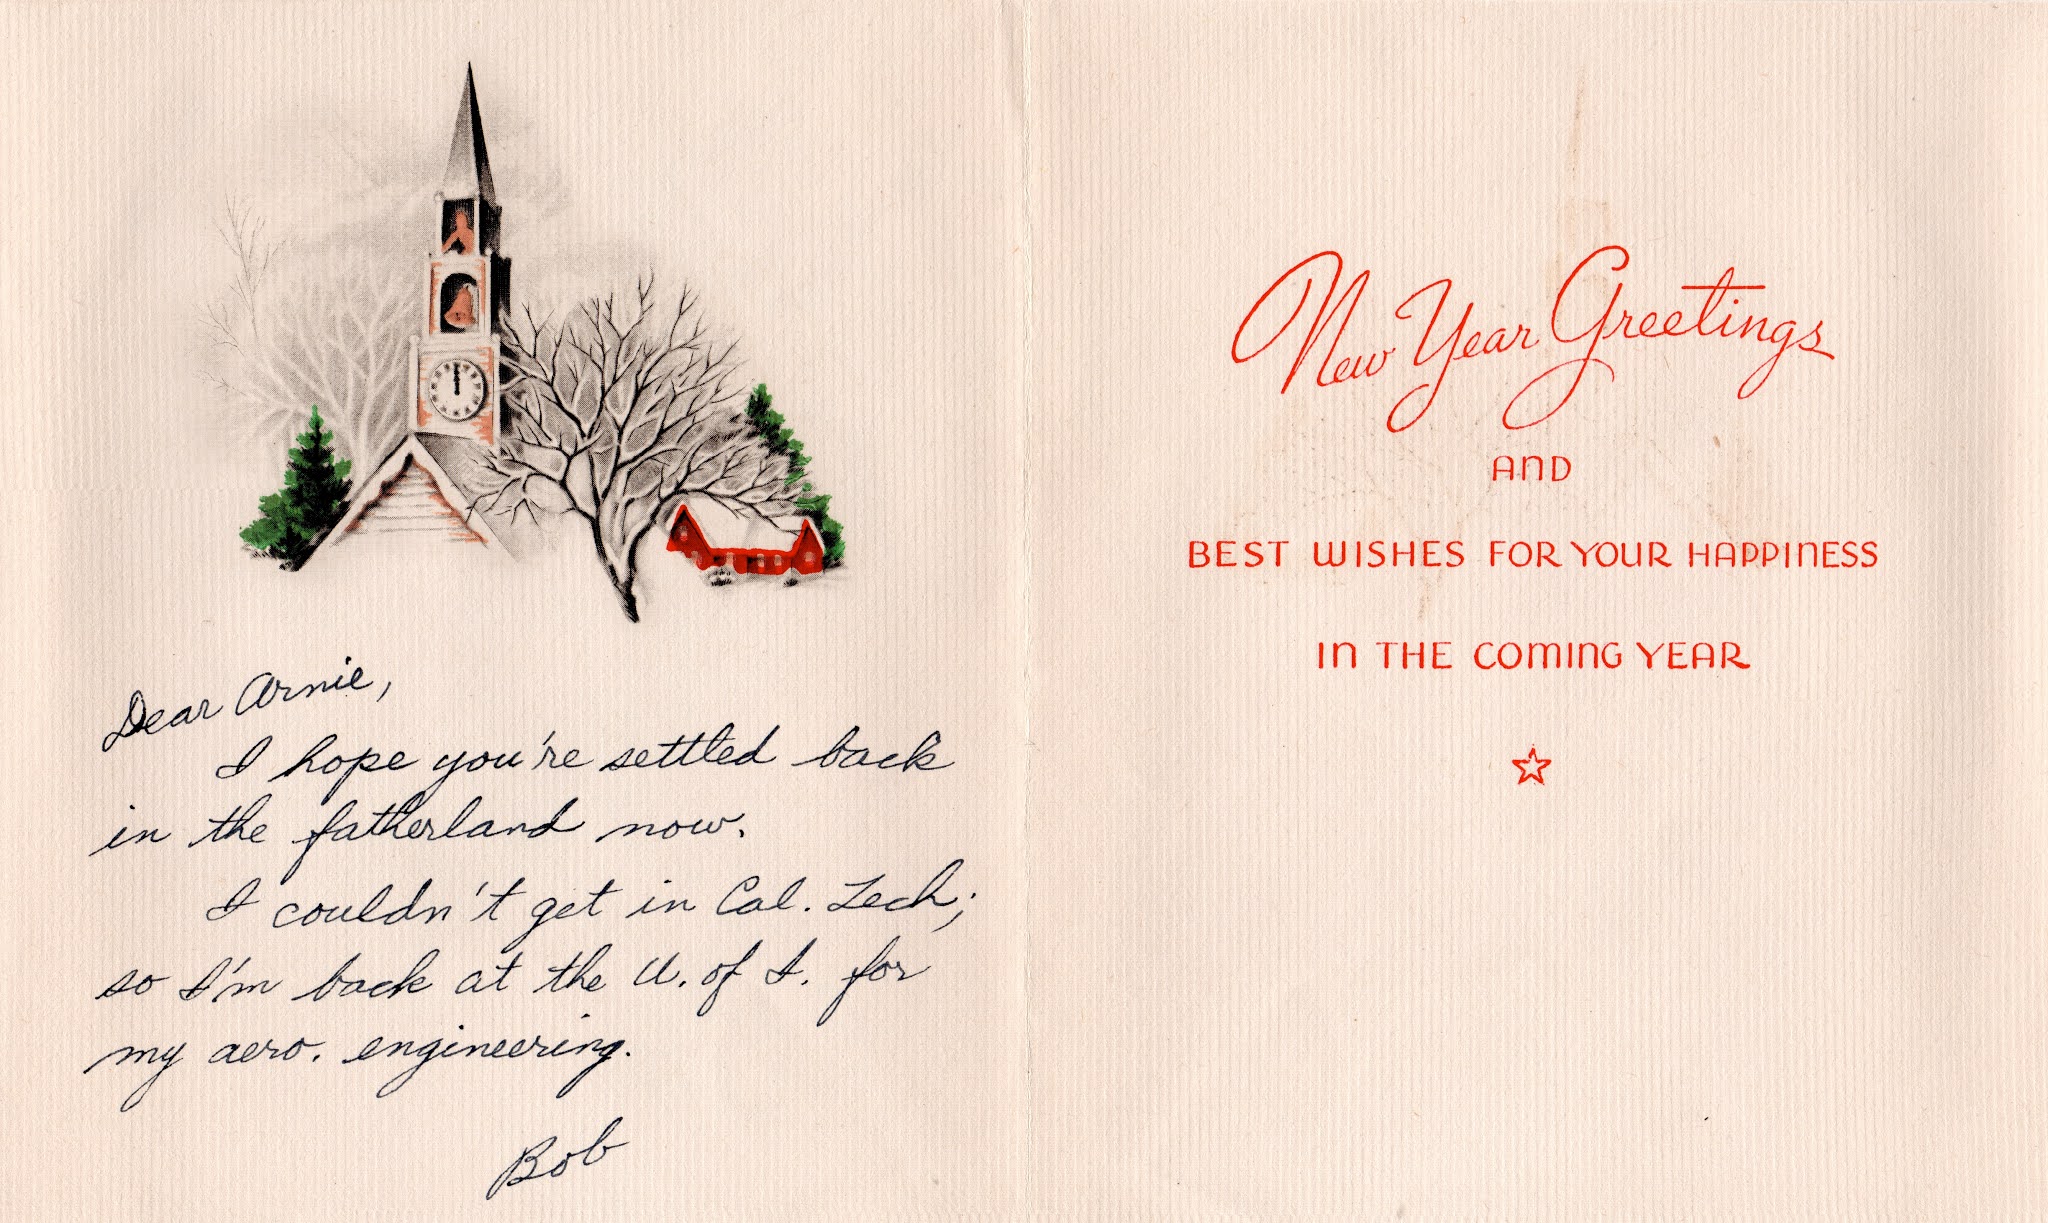 Dear Arnie,
I hope you're settled back
in the fatherland now.
I couldn't get in Cal. Tech;
so I'm back at the U. of I. for
my aero. engineering.
Bob
New Year Greetings
AND
BEST WISHES FOR YOUR HAPPINESS
IN THE COMING YEAR